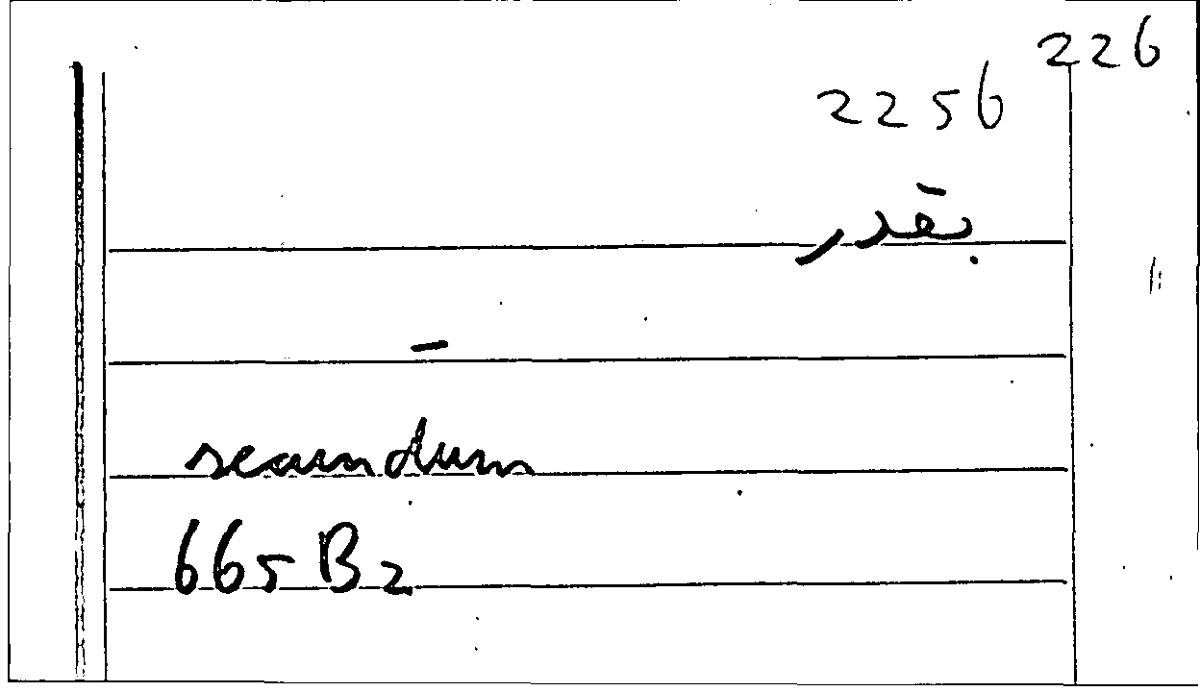 226
2256
بقدر
–
secundum
665 B2